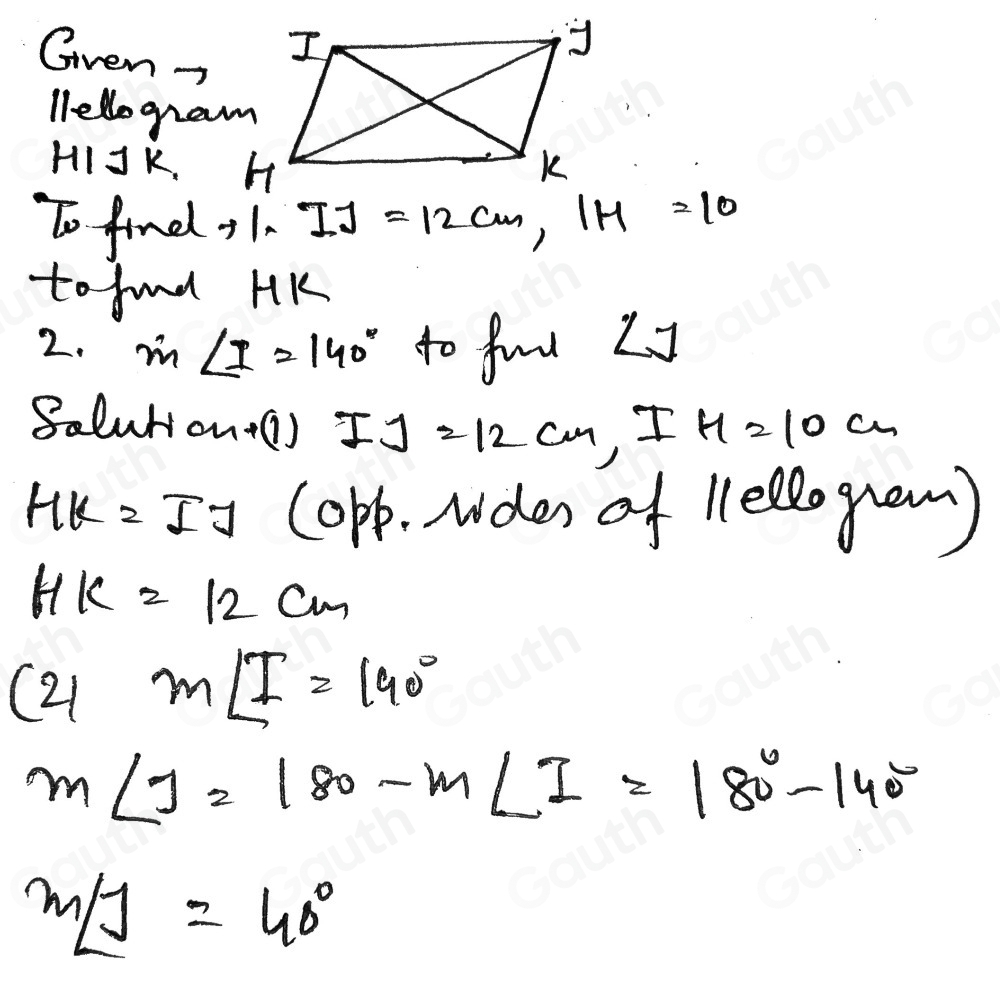 Given →
I J
llellogram
HIJK.
H K
To find → 1. IJ = 12 cm, IH = 10
to find HK
2. m∠I = 140° to find ∠J
Solution → (1) IJ = 12 cm, IH = 10 cm
HK = IJ (opp. sides of llellogram)
HK = 12 cm
(2) m∠I = 140°
m∠J = 180 - m∠I = 180° - 140°
m∠J = 40°
Gauth